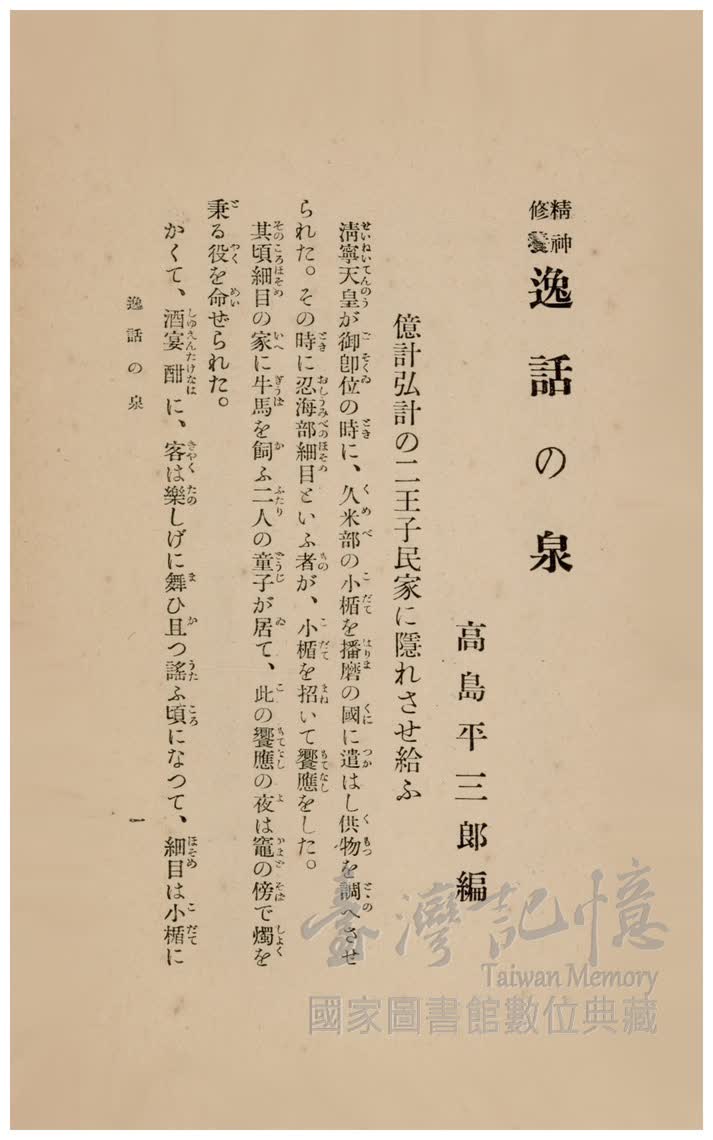 精神
修養
逸話の泉
高島平三郎編
億計弘計の二王子民家に隱れさせ給ふ
淸寧天皇が御卽位の時に、久米部の小楯を播磨の國に遣はし供物を調へさせ
られた。その時に忍海部細目といふ者が、小楯を招いて饗應をした。
其頃細目の家に牛馬を飼ふ二人の童子が居て、此の饗應の夜は竈の傍で燭を
秉る役を命ぜられた。
かくて、酒宴酣に、客は樂しげに舞ひ且つ謠ふ頃になつて、細目は小楯に
逸話の泉
一
臺灣記憶
Taiwan Memory
國家圖書館數位典藏